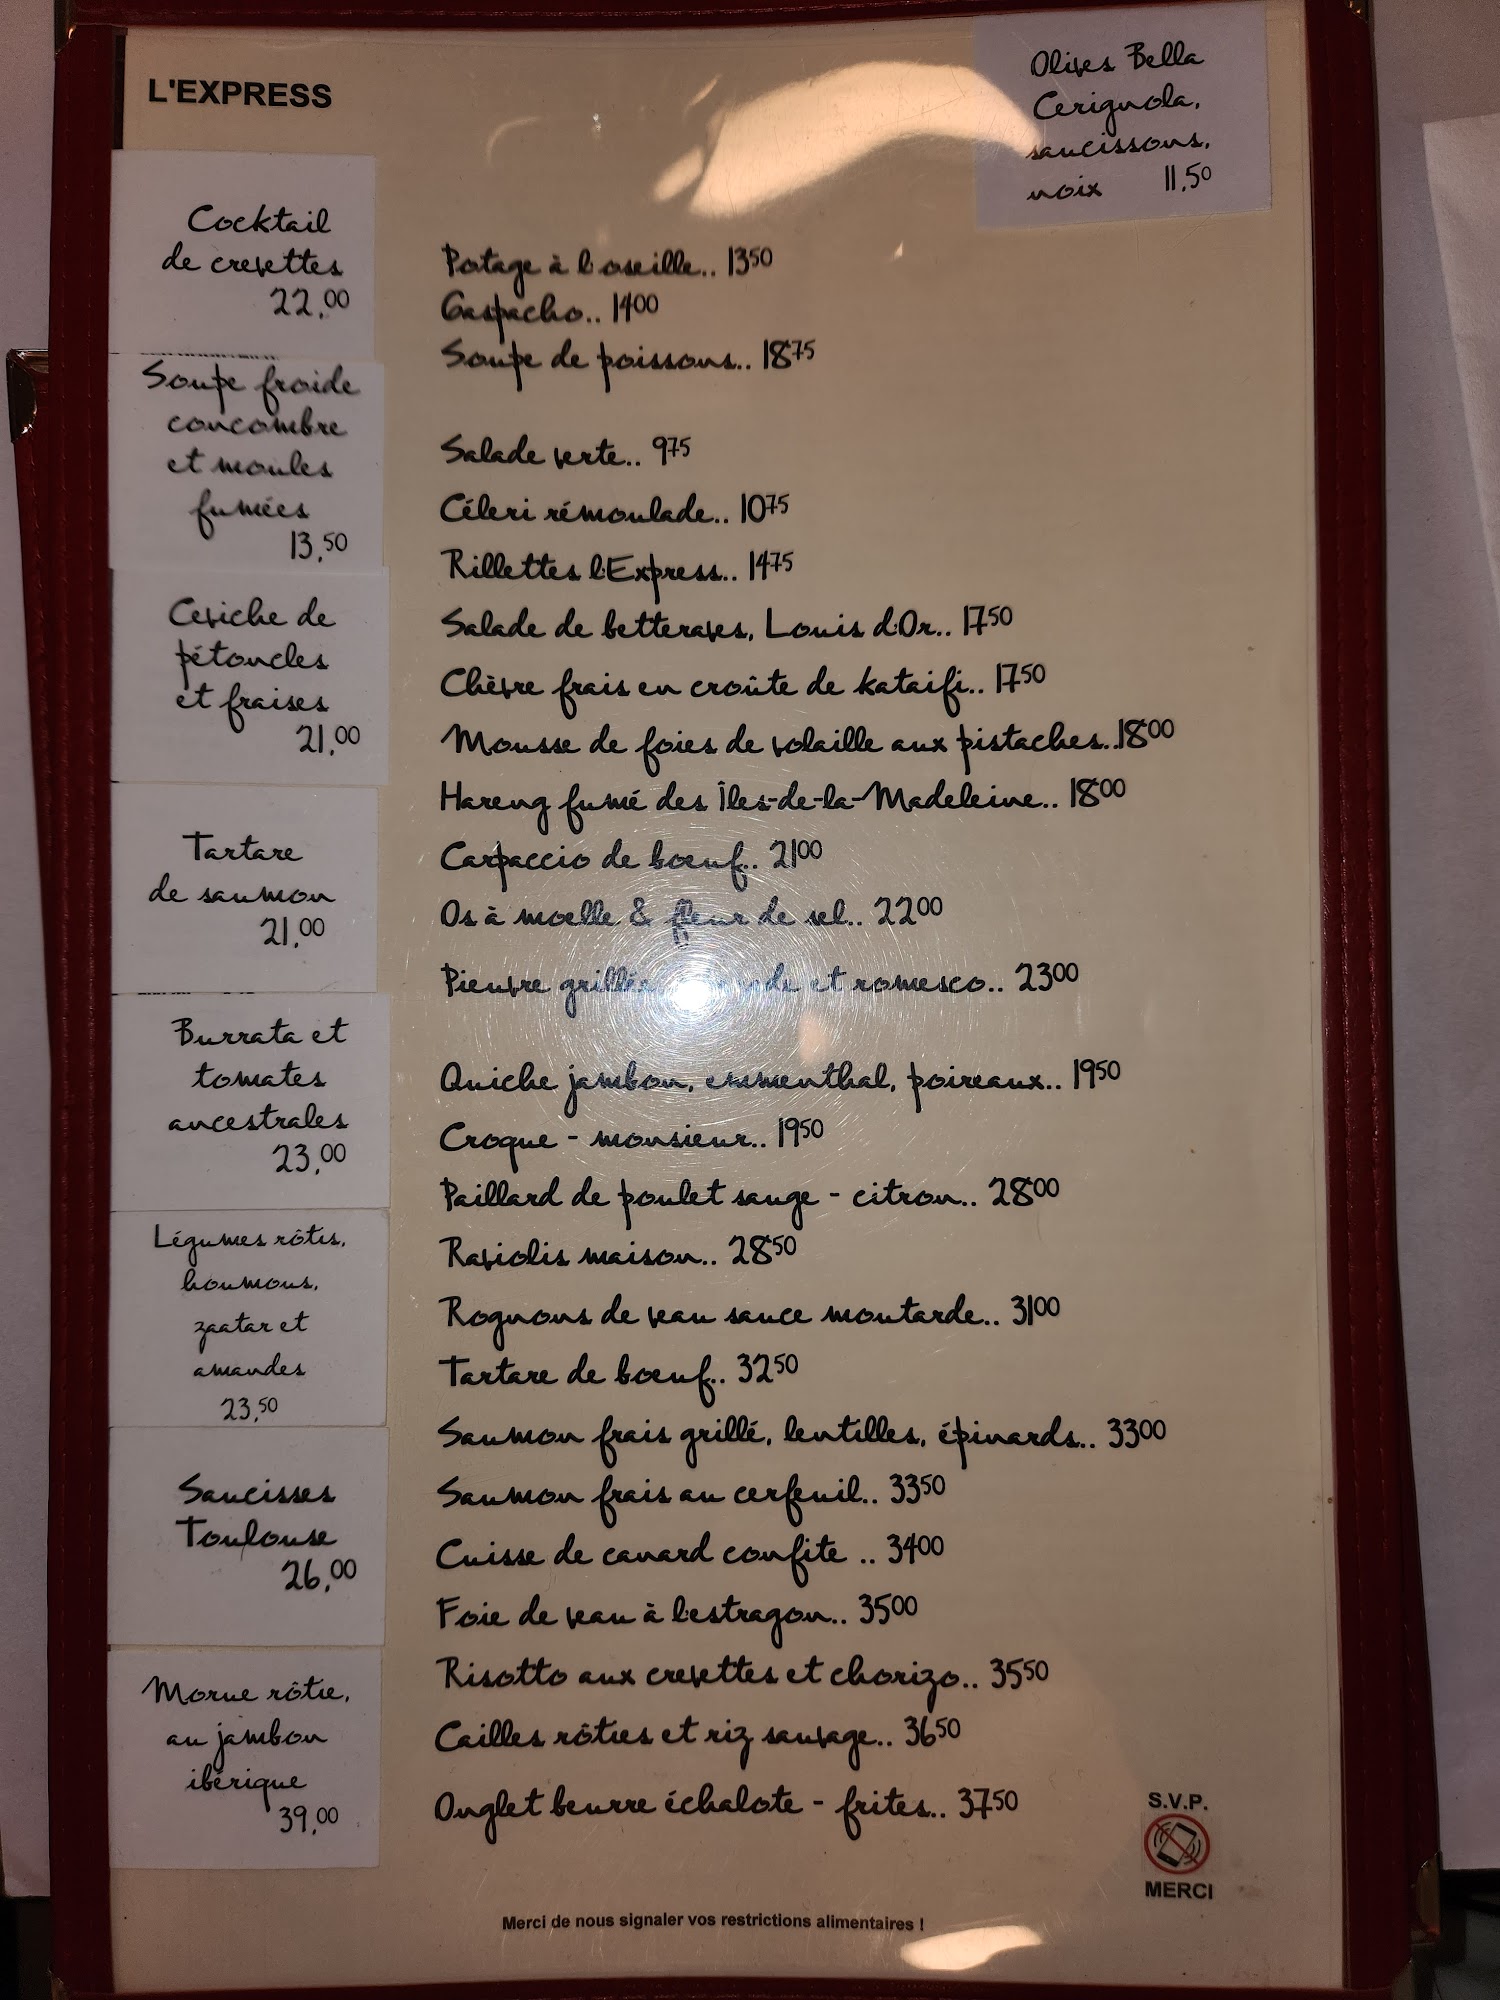 L'EXPRESS
Olives Bella
Cerignola,
saucissons,
noix 11,50
Cocktail
de crevettes
22,00
Soupe froide
concombre
et moules
fumées
13,50
Ceviche de
pétoncles
et fraises
21,00
Tartare
de saumon
21,00
Burrata et
tomates
ancestrales
23,00
Légumes rôtis,
houmous,
zaatar et
amandes
23,50
Saucisses
Toulouse
26,00
Morue rôtie,
au jambon
ibérique
39,00
Potage à l'oseille.. 1350
Gaspacho.. 1400
Soupe de poissons.. 1875
Salade verte.. 975
Céleri rémoulade.. 1075
Rillettes l'Express.. 1475
Salade de betteraves, Louis d'Or.. 1750
Chèvre frais en croûte de kataifi.. 1750
Mousse de foies de volaille aux pistaches..1800
Hareng fumé des Îles-de-la-Madeleine.. 1800
Carpaccio de bœuf.. 2100
Os à moelle & fleur de sel.. 2200
Pieuvre grillée et romesco.. 2300
Quiche jambon, emmenthal, poireaux.. 1950
Croque - monsieur.. 1950
Paillard de poulet sauge - citron.. 2800
Raviolis maison.. 2850
Rognons de veau sauce moutarde.. 3100
Tartare de bœuf.. 3250
Saumon frais grillé, lentilles, épinards.. 3300
Saumon frais au cerfeuil.. 3350
Cuisse de canard confite .. 3400
Foie de veau à l'estragon.. 3500
Risotto aux crevettes et chorizo.. 3550
Cailles rôties et riz sauvage.. 3650
Onglet beurre échalote - frites.. 3750
S.V.P.
MERCI
Merci de nous signaler vos restrictions alimentaires !